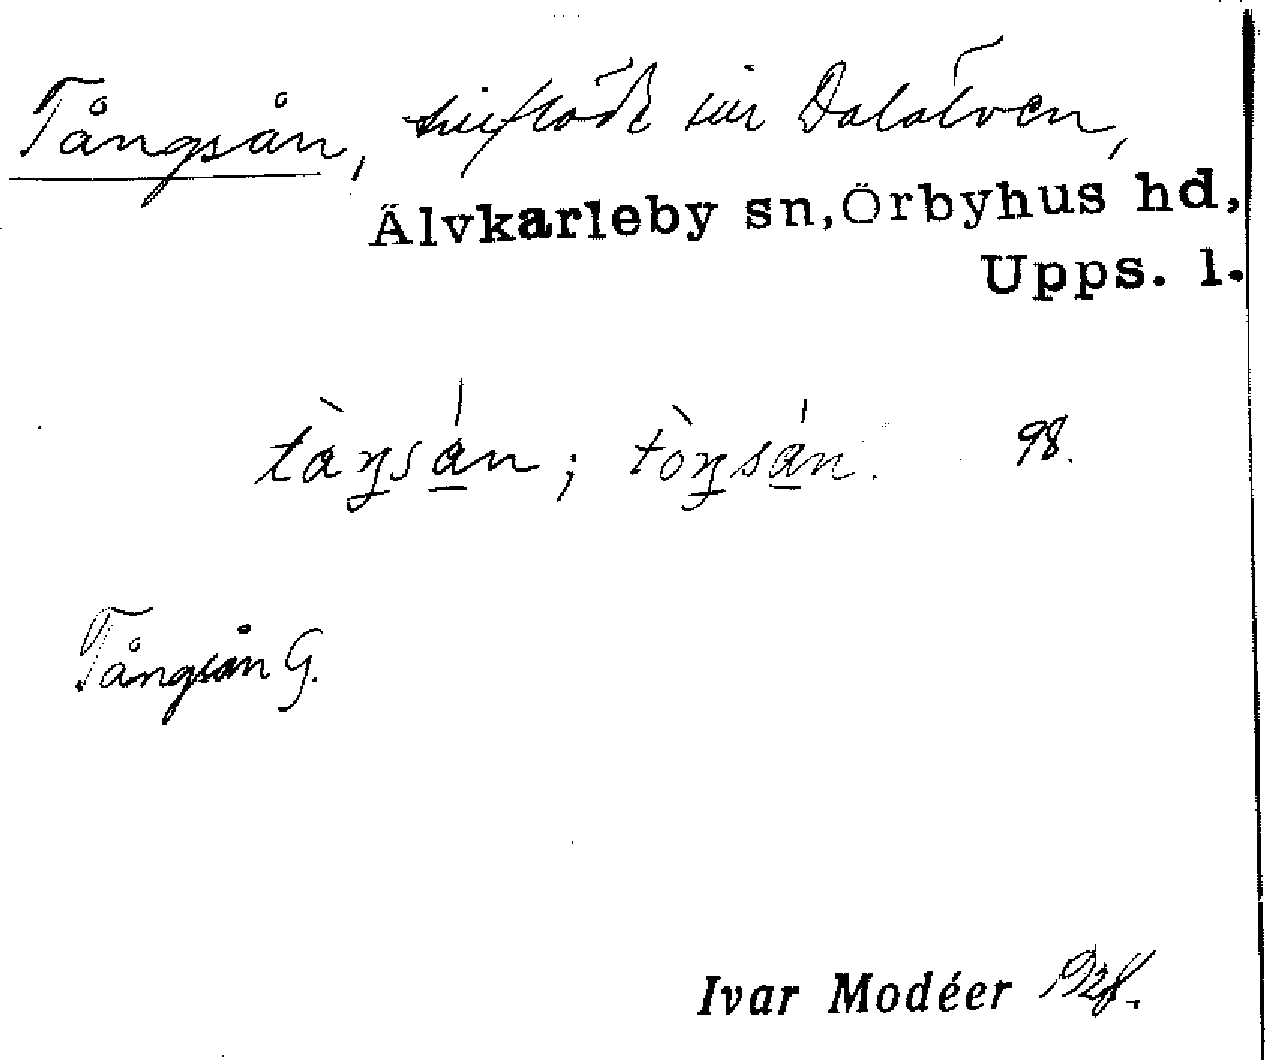 Tångsån, tillflöde till Dalälven,
Älvkarleby sn, Örbyhus hd,
Upps. l.
tàŋsán; tòŋsán. 98.
Tångsån G.
Ivar Modéer 1928.